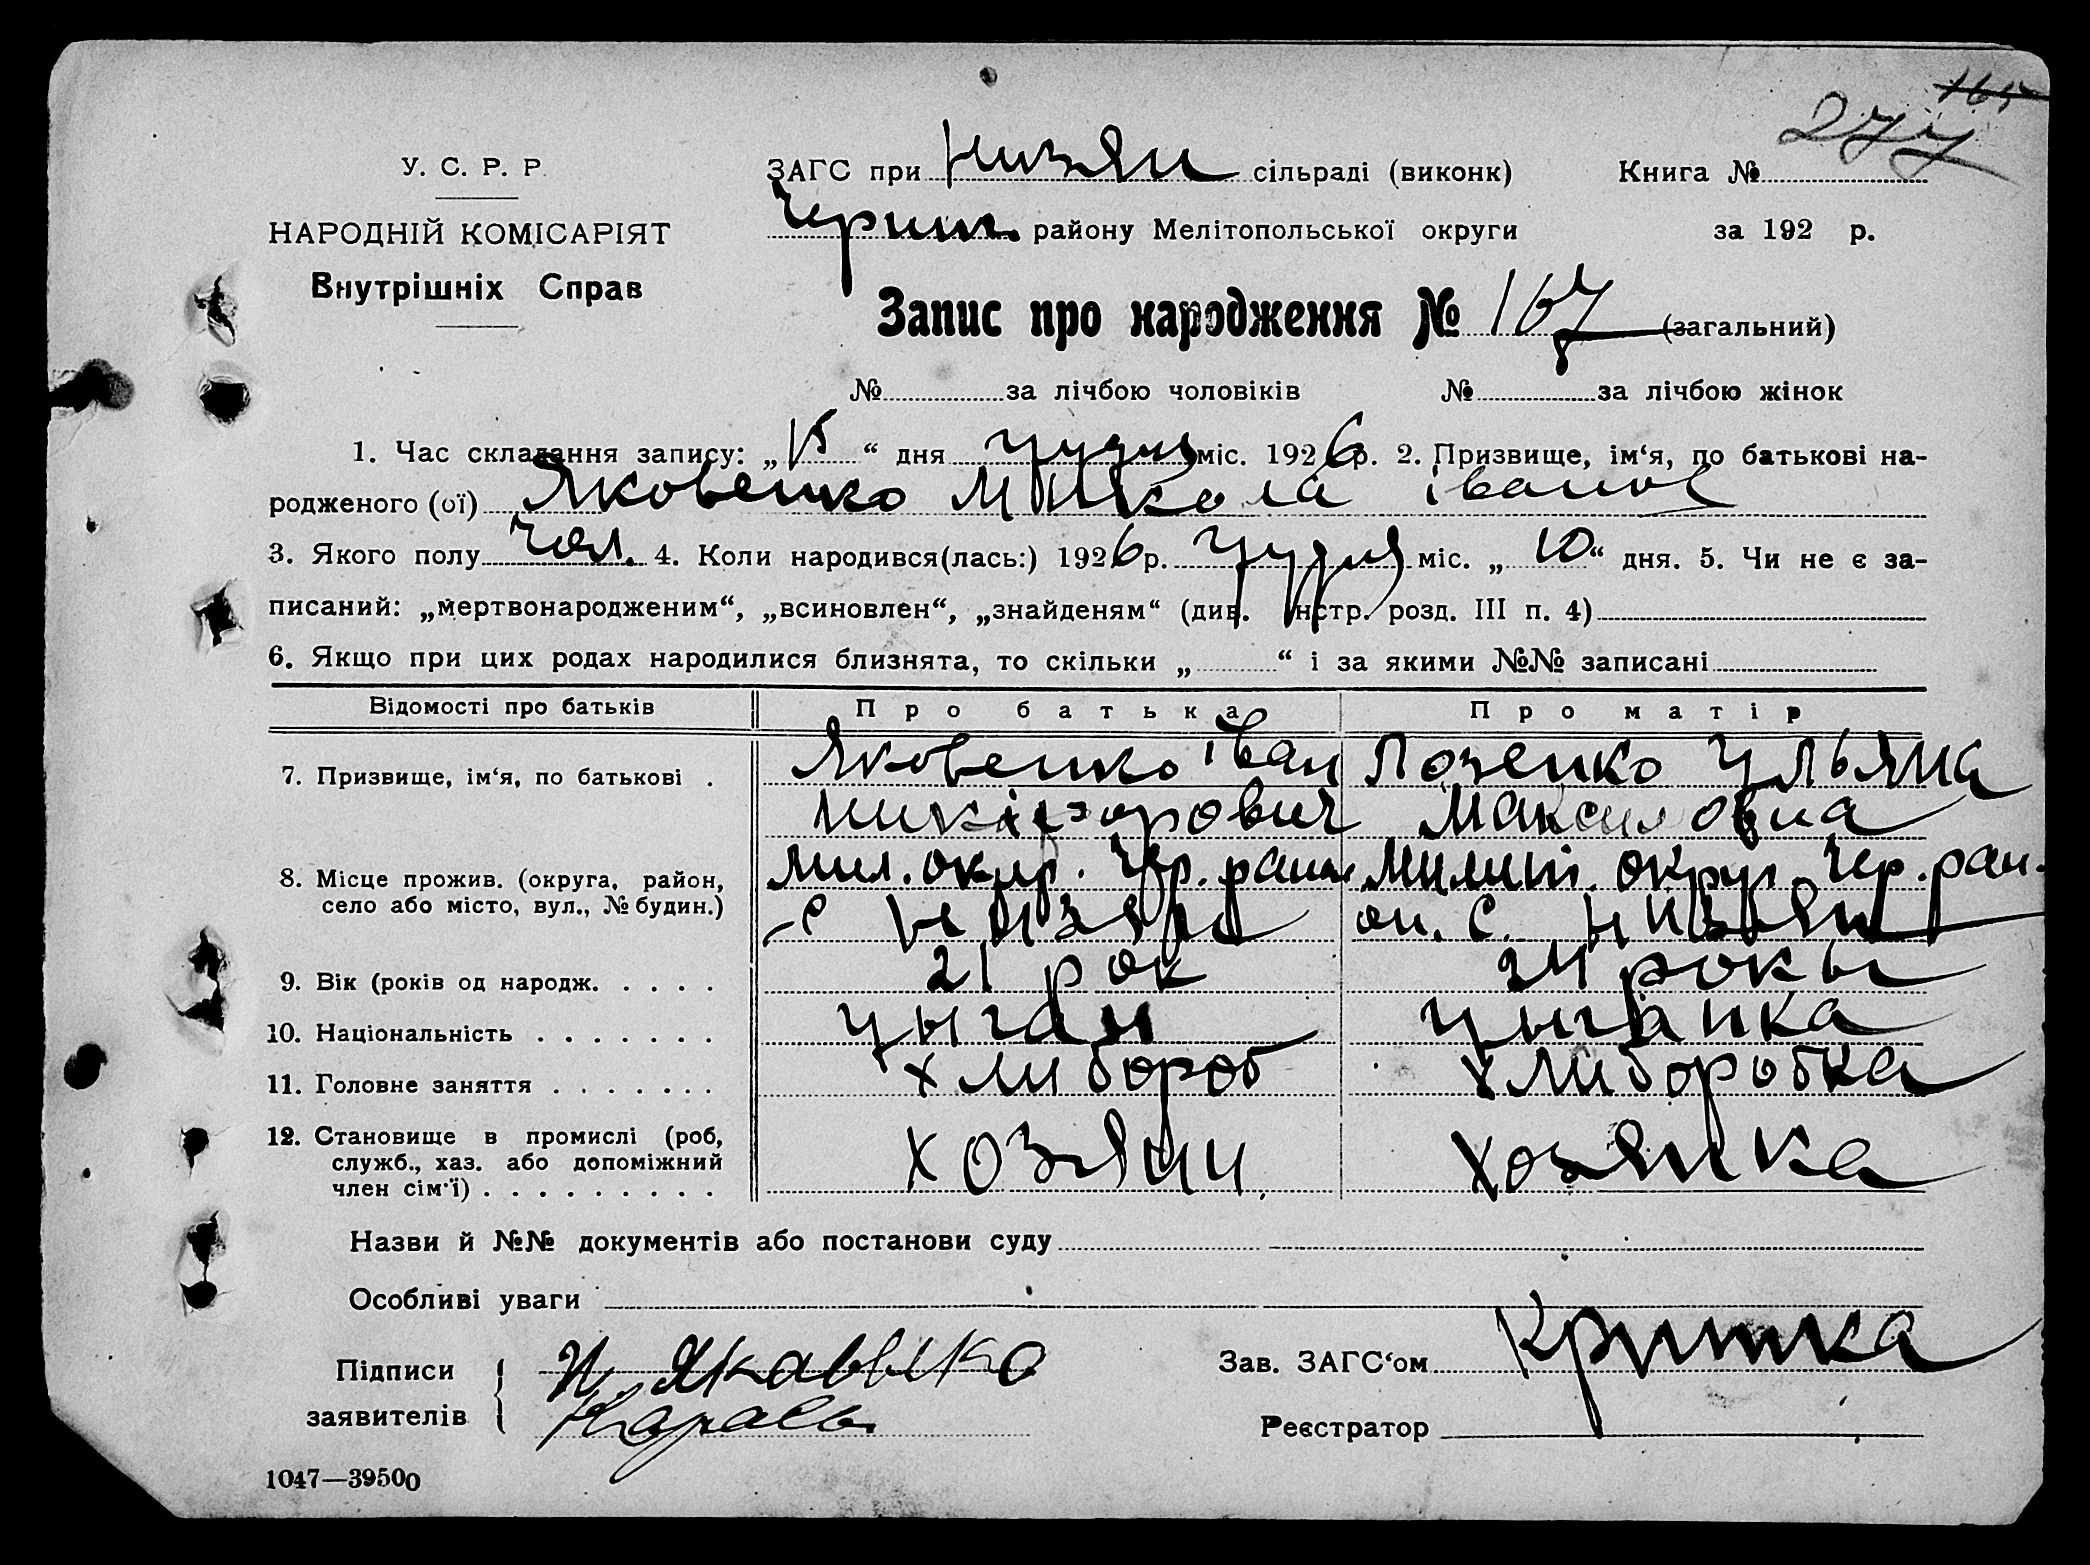 165
277
У. С. Р. Р.
НАРОДНІЙ КОМІСАРІЯТ
Внутрішніх Справ
ЗАГС при Низян сільраді (виконк) Книга №
Черниг. району Мелітопольської округи за 192 р.
Запис про народження № 167 (загальний)
№ за лічбою чоловіків № за лічбою жінок
1. Час складання запису: „15“ дня грудня міс. 1926 р. 2. Призвище, ім‘я, по батькові на-
родженого (ої) Яковенко Микола Іванов
3. Якого полу чол. 4. Коли народився(лась:) 1926 р. грудня міс. „10“ дня. 5. Чи не є за-
писаний: „мертвонародженим“, „всиновлен“, „знайденям“ (див. інстр. розд. III п. 4)
6. Якщо при цих родах народилися близнята, то скільки „ “ і за якими №№ записані
Відомості про батьків Про батька Про матір
7. Призвище, ім‘я, по батькові . Яковенко Іван Лозенко Ульяна
Никіфорович Максимовна
8. Місце прожив. (округа, район, Мил. окр. Чер. район Милит. округ. Чер. рай-
село або місто, вул., № будин.) с Низяни он. С. Низяни
9. Вік (років од народж. . . . . 21 рок 24 рокы
10. Національність . . . . . . . цыган цыганка
11. Головне заняття . . . . . . . хлибороб хлиборобка
12. Становище в промислі (роб, хозяин хозяйка
служб., хаз. або допоміжний
член сім‘ї) . . . . . . . . .
Назви й №№ документів або постанови суду
Особливі уваги
Підписи И Якавенко Зав. ЗАГС‘ом
заявителів Карась Реєстратор
1047—39500